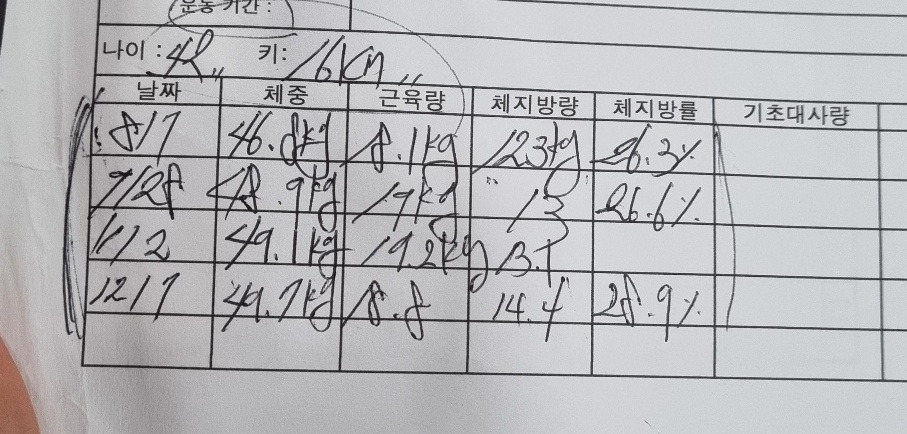 운동 기간 :
나이 : 42 키: 161cm
날짜 체중 근육량 체지방량 체지방률 기초대사량
8/7 46.8kg 18.1kg 12.3kg 26.3%
9/28 48.9kg 19kg 13 26.6%
11/2 49.1kg 19.2kg 13.1
12/7 49.7kg 18.8 14.4 28.9%